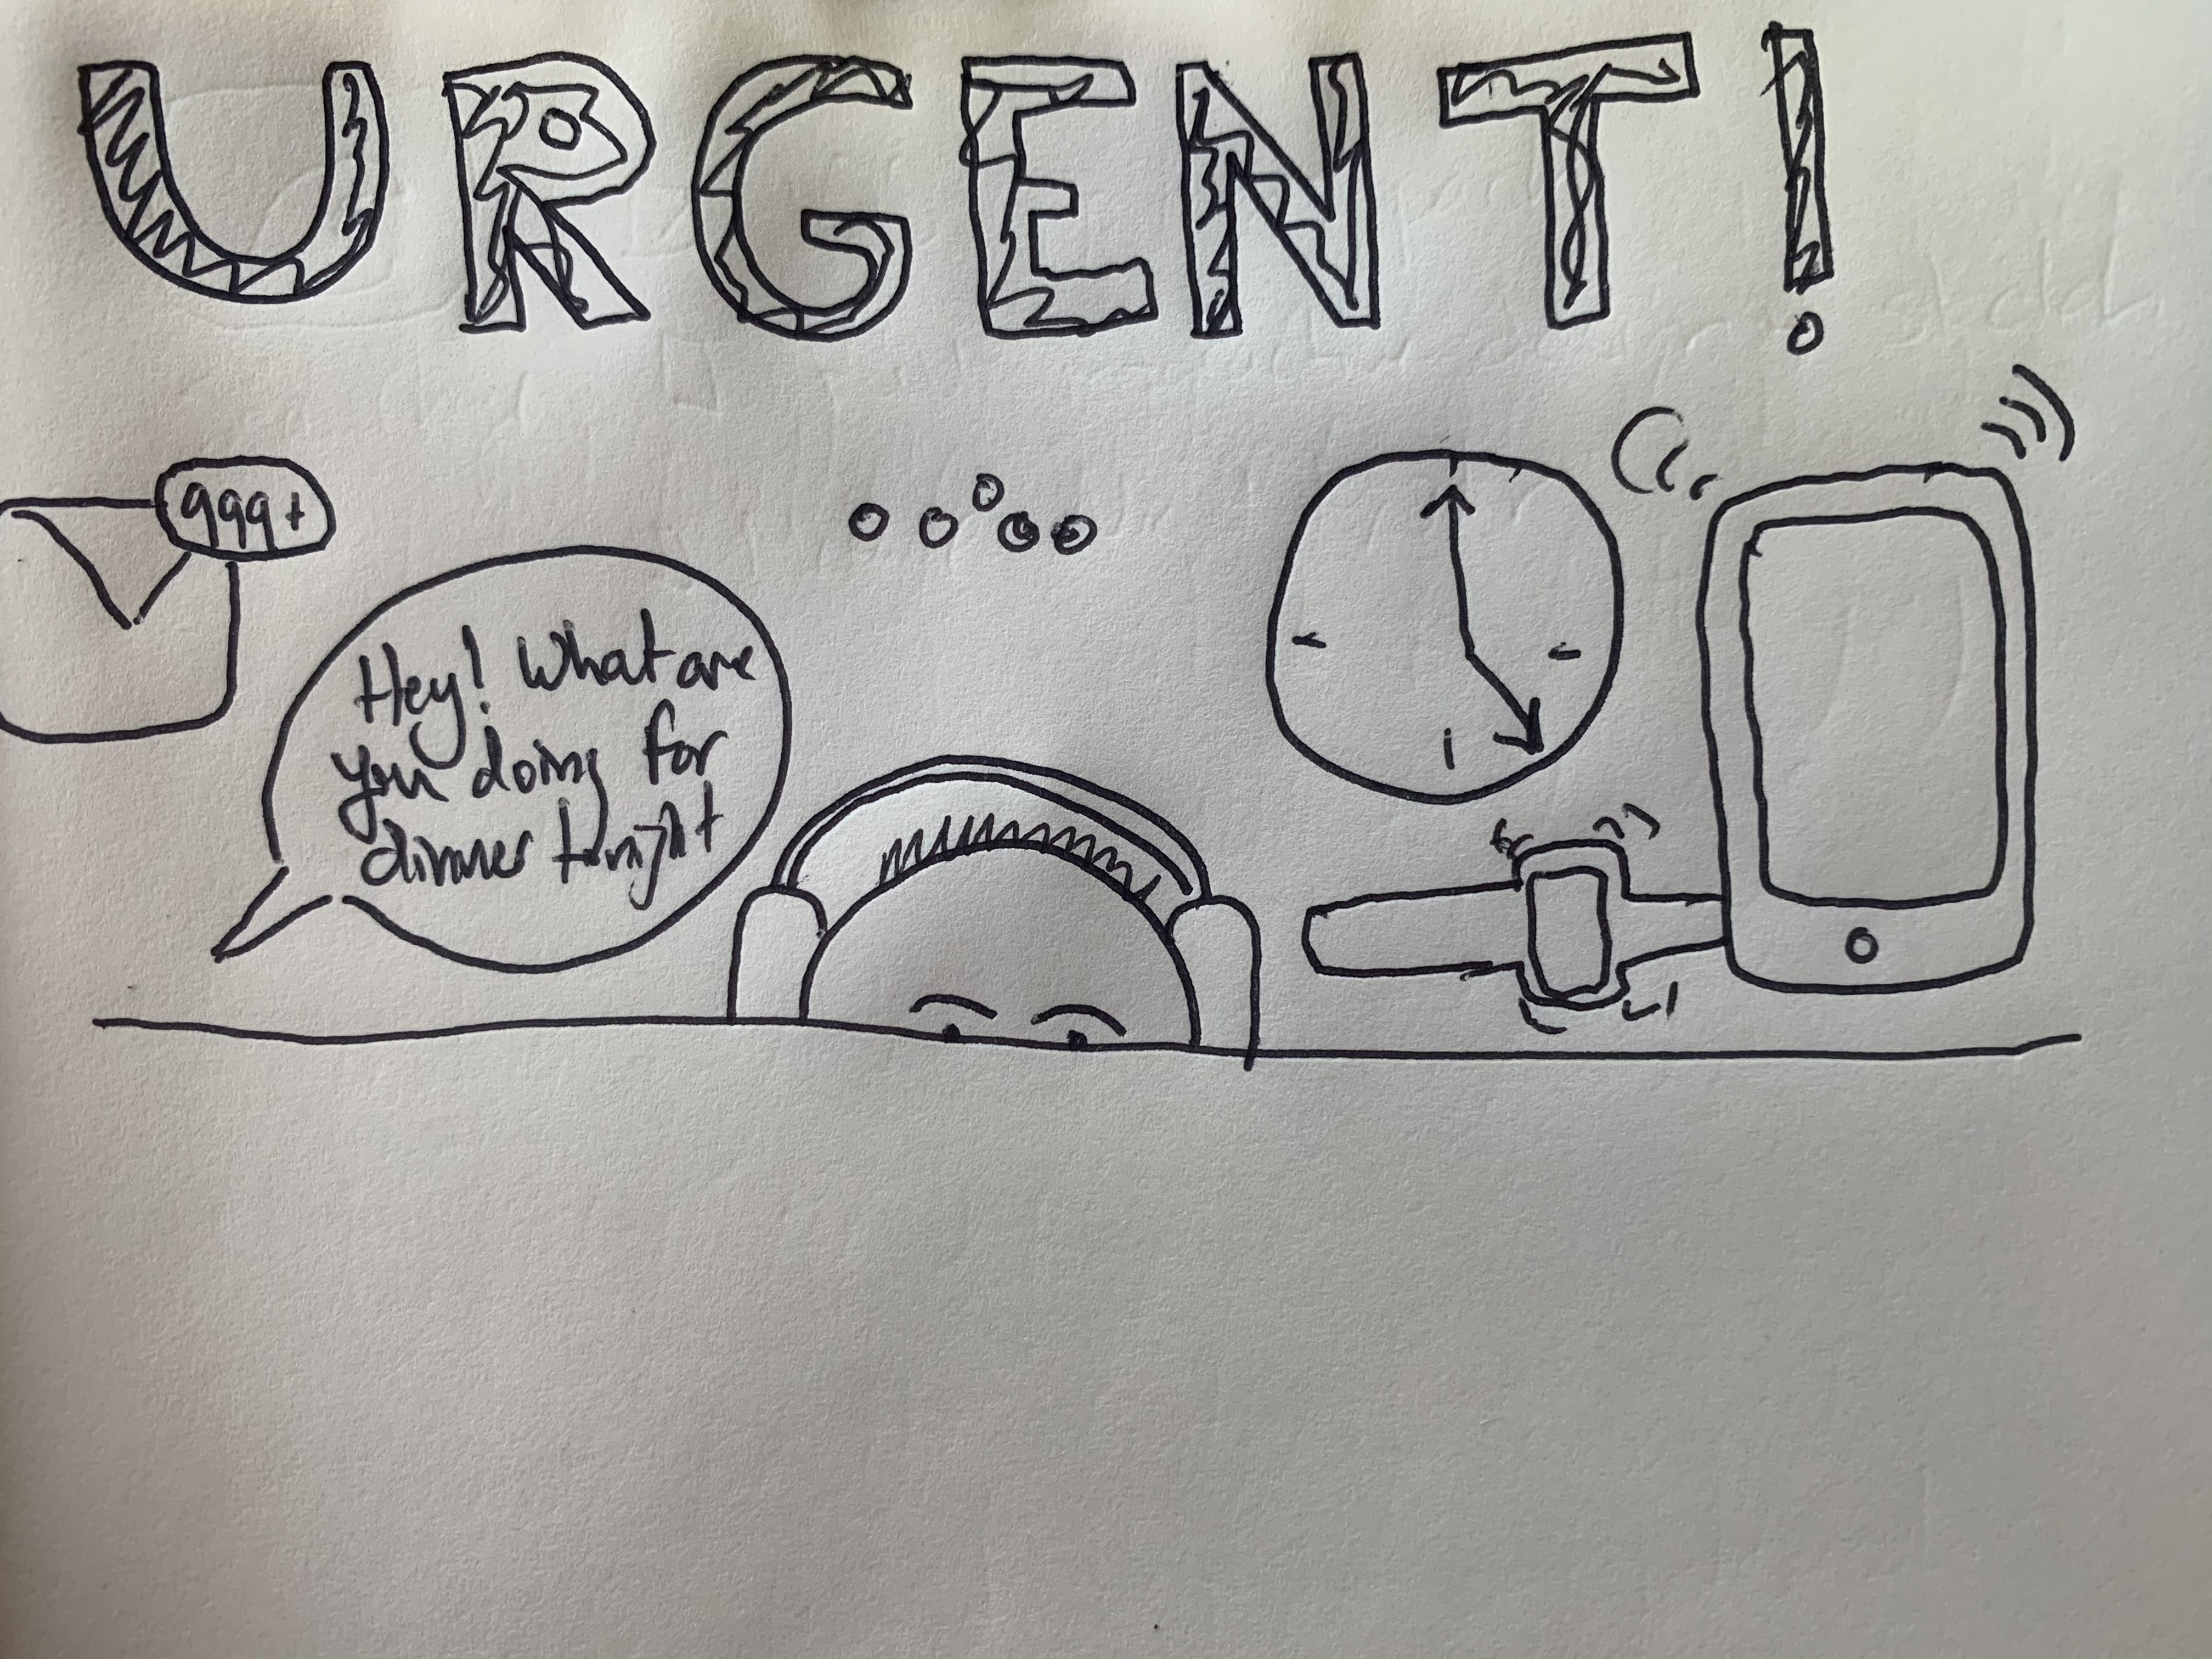 URGENT!
999+
Hey! What are
you doing for
dinner tonight